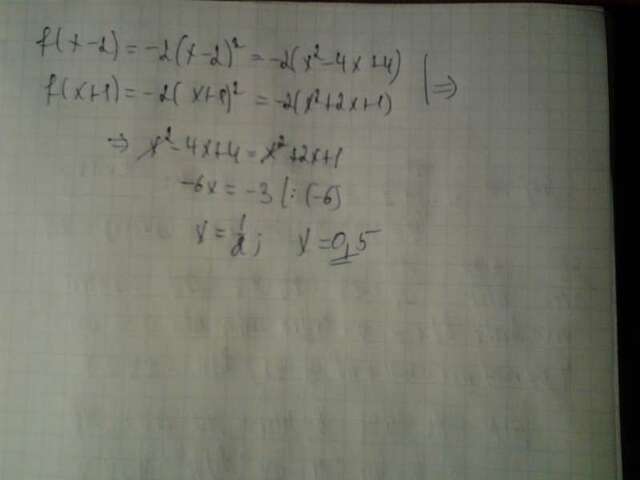 f(x-2) = -2(x-2)² = -2(x²-4x+4) | ⇒
f(x+1) = -2(x+1)² = -2(x²+2x+1)
⇒ x²-4x+4 = x²+2x+1
-6x = -3 |: (-6)
x = 1/2; x = 0,5